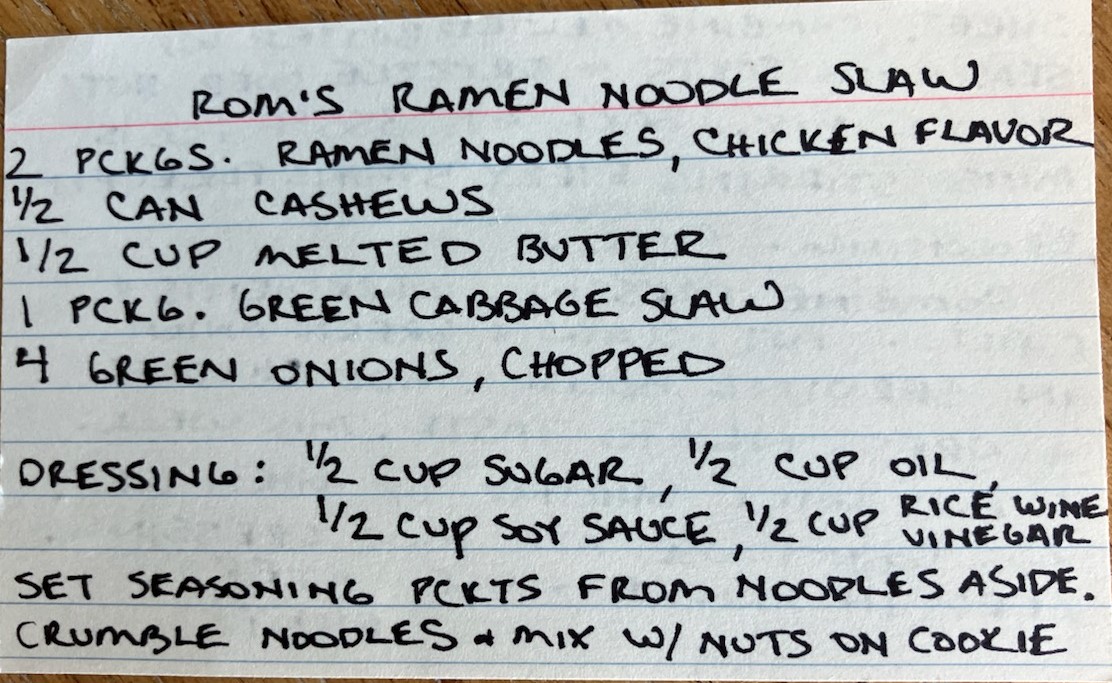 ROM'S RAMEN NOODLE SLAW
2 PCKGS. RAMEN NOODLES, CHICKEN FLAVOR
1/2 CAN CASHEWS
1/2 CUP MELTED BUTTER
1 PCKG. GREEN CABBAGE SLAW
4 GREEN ONIONS, CHOPPED
DRESSING: 1/2 CUP SUGAR, 1/2 CUP OIL,
1/2 CUP SOY SAUCE, 1/2 CUP RICE WINE VINEGAR
SET SEASONING PCKTS FROM NOODLES ASIDE.
CRUMBLE NOODLES & MIX W/ NUTS ON COOKIE